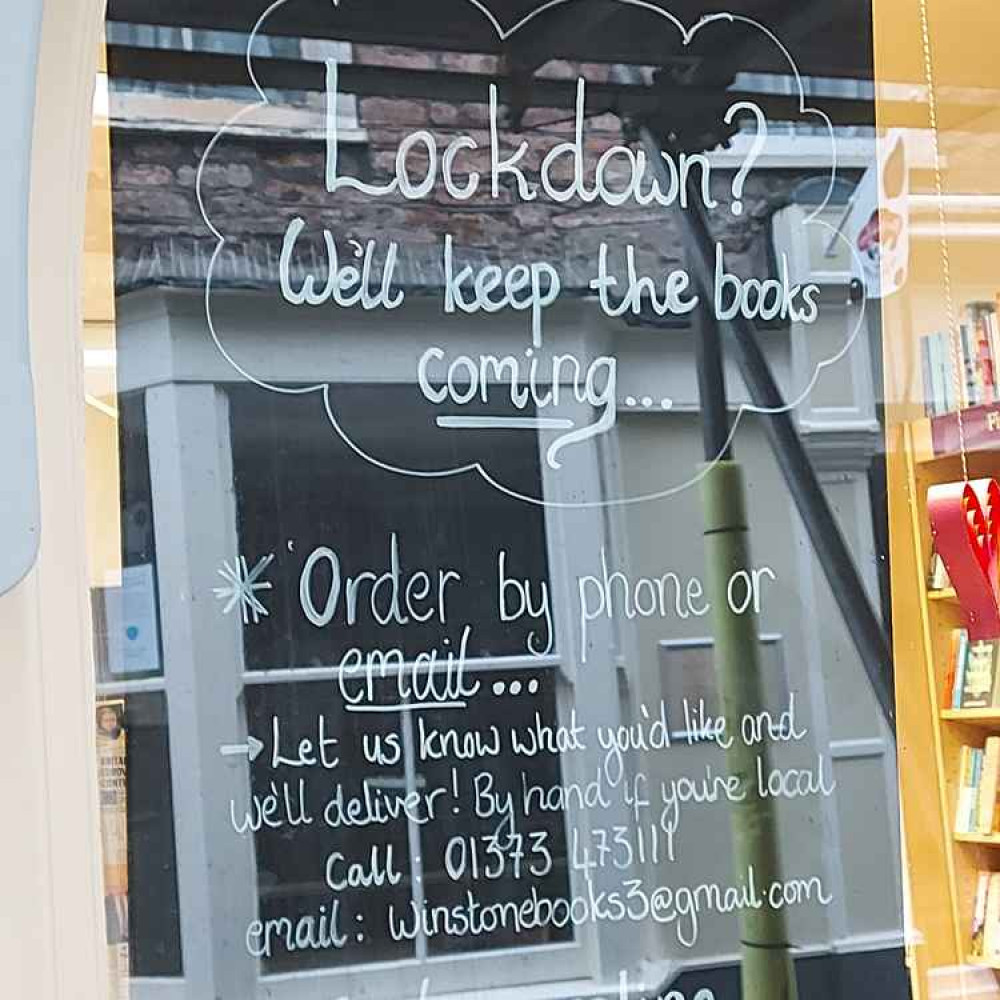 Lockdown?
We'll keep the books
coming...
* Order by phone or
email...
→ Let us know what you'd like and
we'll deliver! By hand if you're local
Call : 01373 473111
email : Winstonebooks3@gmail.com